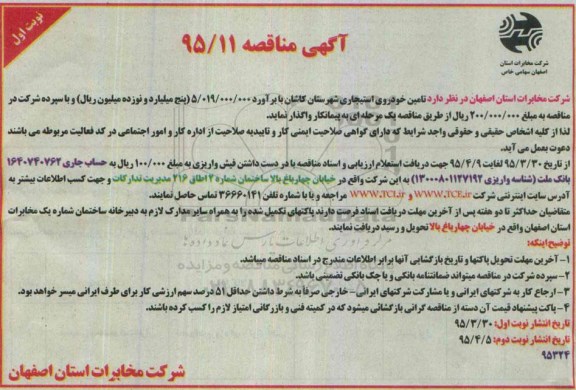 نوبت اول
آگهی مناقصه ۹۵/۱۱
شرکت مخابرات استان
اصفهان سهامی خاص
شرکت مخابرات استان اصفهان در نظر دارد تامین خودروی استیجاری شهرستان کاشان با برآورد ۵/۰۱۹/۰۰۰/۰۰۰ (پنج میلیارد و نوزده میلیون ریال) و با سپرده شرکت در
مناقصه به مبلغ ۲۰۰/۰۰۰/۰۰۰ ریال از طریق مناقصه یک مرحله ای به پیمانکار واگذار نماید.
لذا از کلیه اشخاص حقیقی و حقوقی واجد شرایط که دارای گواهی صلاحیت ایمنی کار و تاییدیه صلاحیت از اداره کار و امور اجتماعی در کد فعالیت مربوطه می باشند
دعوت بعمل می آید.
از تاریخ ۹۵/۳/۳۰ لغایت ۹۵/۴/۹ جهت دریافت استعلام ارزیابی و اسناد مناقصه با در دست داشتن فیش واریزی به مبلغ ۱۰۰/۰۰۰ ریال به حساب جاری ۱۶۴۰۷۴۰۷۶۲
بانک ملت (شناسه واریزی ۱۳۰۰۰۸۰۱۱۲۷۱۹۲) به این شرکت واقع در خیابان چهارباغ بالا ساختمان شماره ۲ اطاق ۲۱۶ مدیریت تدارکات و جهت کسب اطلاعات بیشتر به
آدرس سایت اینترنتی شرکت WWW.TCE.IR و WWW.TCI.IR مراجعه و یا با شماره تلفن ۳۶۶۶۰۱۴۱ تماس حاصل نمایند.
متقاضیان حداکثر تا دو هفته پس از آخرین مهلت دریافت اسناد فرصت دارند پاکتهای تکمیل شده را به همراه سایر مدارک لازم به دبیرخانه ساختمان شماره یک مخابرات
استان اصفهان واقع در خیابان چهارباغ بالا تحویل و رسید دریافت نمایند.
توضیح اینکه:
۱- آخرین مهلت تحویل پاکتها و تاریخ بازگشایی آنها برابر اطلاعات مندرج در اسناد مناقصه میباشد.
۲- سپرده شرکت در مناقصه میتواند ضمانتنامه بانکی و یا چک بانکی تضمینی باشد.
۳- ارجاع کار به شرکتهای ایرانی و یا مشارکت شرکتهای ایرانی - خارجی صرفا به شرط داشتن حداقل ۵۱ درصد سهم ارزشی کار برای طرف ایرانی میسر خواهد بود.
۴- پاکت پیشنهاد قیمت آن دسته از مناقصه گرانی بازگشائی میشود که در کمیته فنی و بازرگانی امتیاز لازم را کسب کرده باشند.
تاریخ انتشار نوبت اول: ۹۵/۳/۳۰
تاریخ انتشار نوبت دوم: ۹۵/۴/۵
۹۵۳۲۴
شرکت مخابرات استان اصفهان